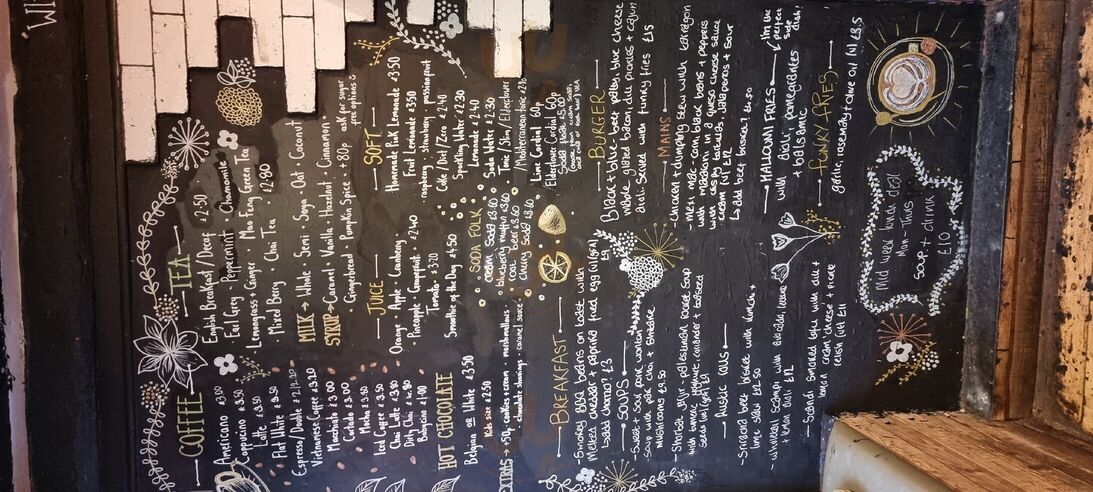 COFFEE
Americano £3.00
Cappucino £3.50
Latte £3.50
Flat White £3.50
Espresso / Double
Vietnamese Coffee £3.20
Macchiato £3.00
Cortado £3.00
Mocha
Iced Coffee £3.50
Chai Latte £3.80
Dirty Chai
Babycino £1.00
HOT CHOCOLATE
Belgian or White £3.50
Kids Size £2.50
EXTRAS → 50p · cookies + cream · marshmallows
· chocolate shavings · caramel sauce
TEA
English Breakfast / Decaf £2.50
Earl Grey · Peppermint · Chamomile
Lemongrass + Ginger · Mao Feng Green Tea
· Mixed Berry · Chai Tea £2.80
MILK → Whole · Semi · Soya · Oat · Coconut
SYRUP → Caramel · Vanilla · Hazelnut · Cinnamon ·
· Gingerbread · Pumpkin Spice · +80p
ask for sugar
free options
JUICE
Orange · Apple · Cranberry
· Pineapple · Grapefruit · £2.40
Tomato £3.20
Smoothie of the Day £4.50
SOFT
Homemade Pink Lemonade £3.50
Fruit Lemonade £3.50
· raspberry · strawberry · passionfruit
Coke / Diet / Zero £2.40
Sparkling Water £2.30
Lemonade £2.40
Soda Water £2.30
Tonic / Slim / Elderflower
/ Mediterranean tonic
Lime Cordial 60p
Elderflower Cordial 60p
SODA FOLK
cream soda £3.60
blueberry muffin £3.60
root beer £3.60
cherry soda £3.60
BREAKFAST
- Smokey BBQ beans on toast with
melted cheddar + paprika fried egg (v)(gfa) £9
- add chorizo? £3
SOUPS
- Sweet + sour pork wontons
soup with pak choi + shiitake
mushrooms £9.50
- Shorbat Jarjir - palestinian rocket soup
with turmeric, coriander + toasted
seeds £9
Rustic Rolls
- Shredded beef brisket with kimchi +
lime slaw £12.50
- wholetail scampi with avocado, lettuce
+ lemon aioli £12
- Scandi smoked tofu with dill +
lemon cream cheese + pickle
relish (v) £11
BURGER
Black + blue beef patty, blue cheese
maple glazed bacon, dill pickles + cajun
aioli served with funky fries £15
MAINS
- Chicken + dumpling stew with tarragon
- Mexi mac - corn, black beans + peppers
with macaroni in a queso cheese sauce
with crispy tortillas, jalapenos + sour
cream (v) £12
↳ add beef brisket? £4.50
HALLOUMI FRIES
with aioli, pomegranates
+ balsamic
I'm the
perfect
side
dish!
FUNKY FRIES
garlic, rosemary + olive oil (v) £3.5
Mid week kinda deal
Mon - Thurs
SOUP + drink
£10